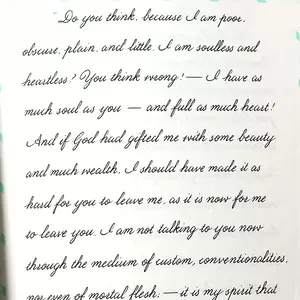 "Do you think, because I am poor,
obscure, plain, and little, I am soulless and
heartless? You think wrong! — I have as
much soul as you — and full as much heart!
And if God had gifted me with some beauty
and much wealth, I should have made it as
hard for you to leave me, as it is now for me
to leave you. I am not talking to you now
through the medium of custom, conventionalities,
nor even of mortal flesh; — it is my spirit that